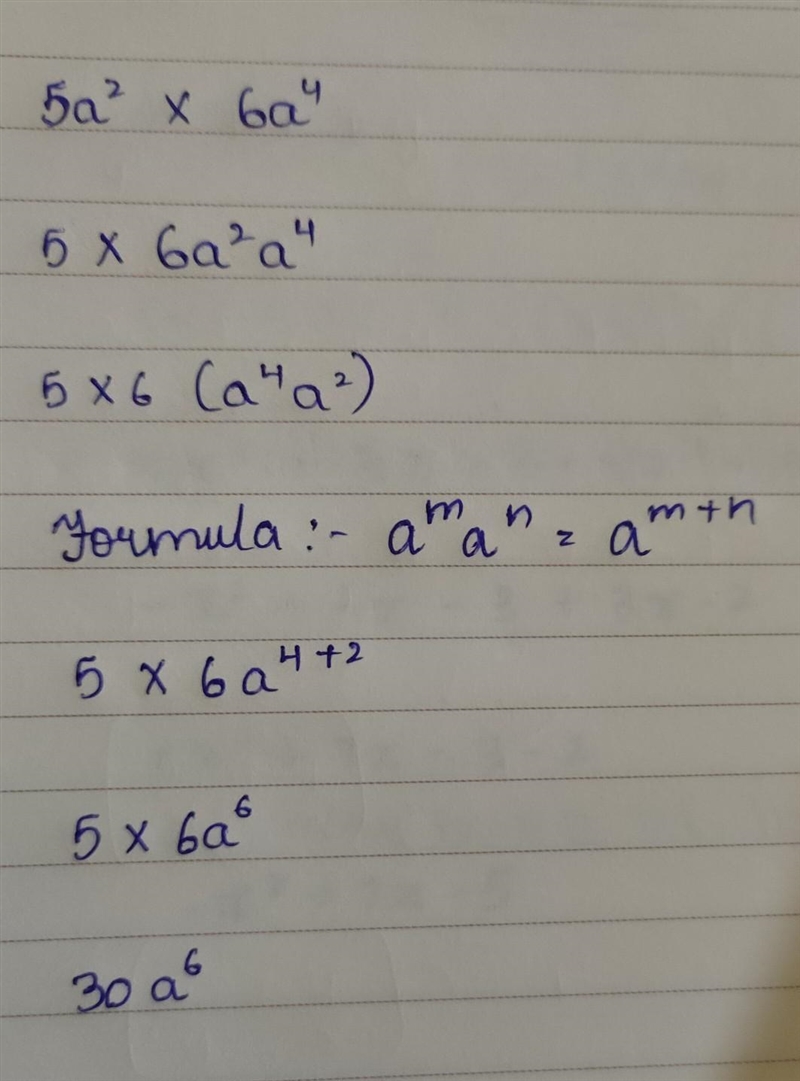 5a² × 6a⁴
5 × 6a²a⁴
5 × 6 (a⁴a²)
Formula :- aᵐaⁿ = aᵐ⁺ⁿ
5 × 6a⁴⁺²
5 × 6a⁶
30 a⁶